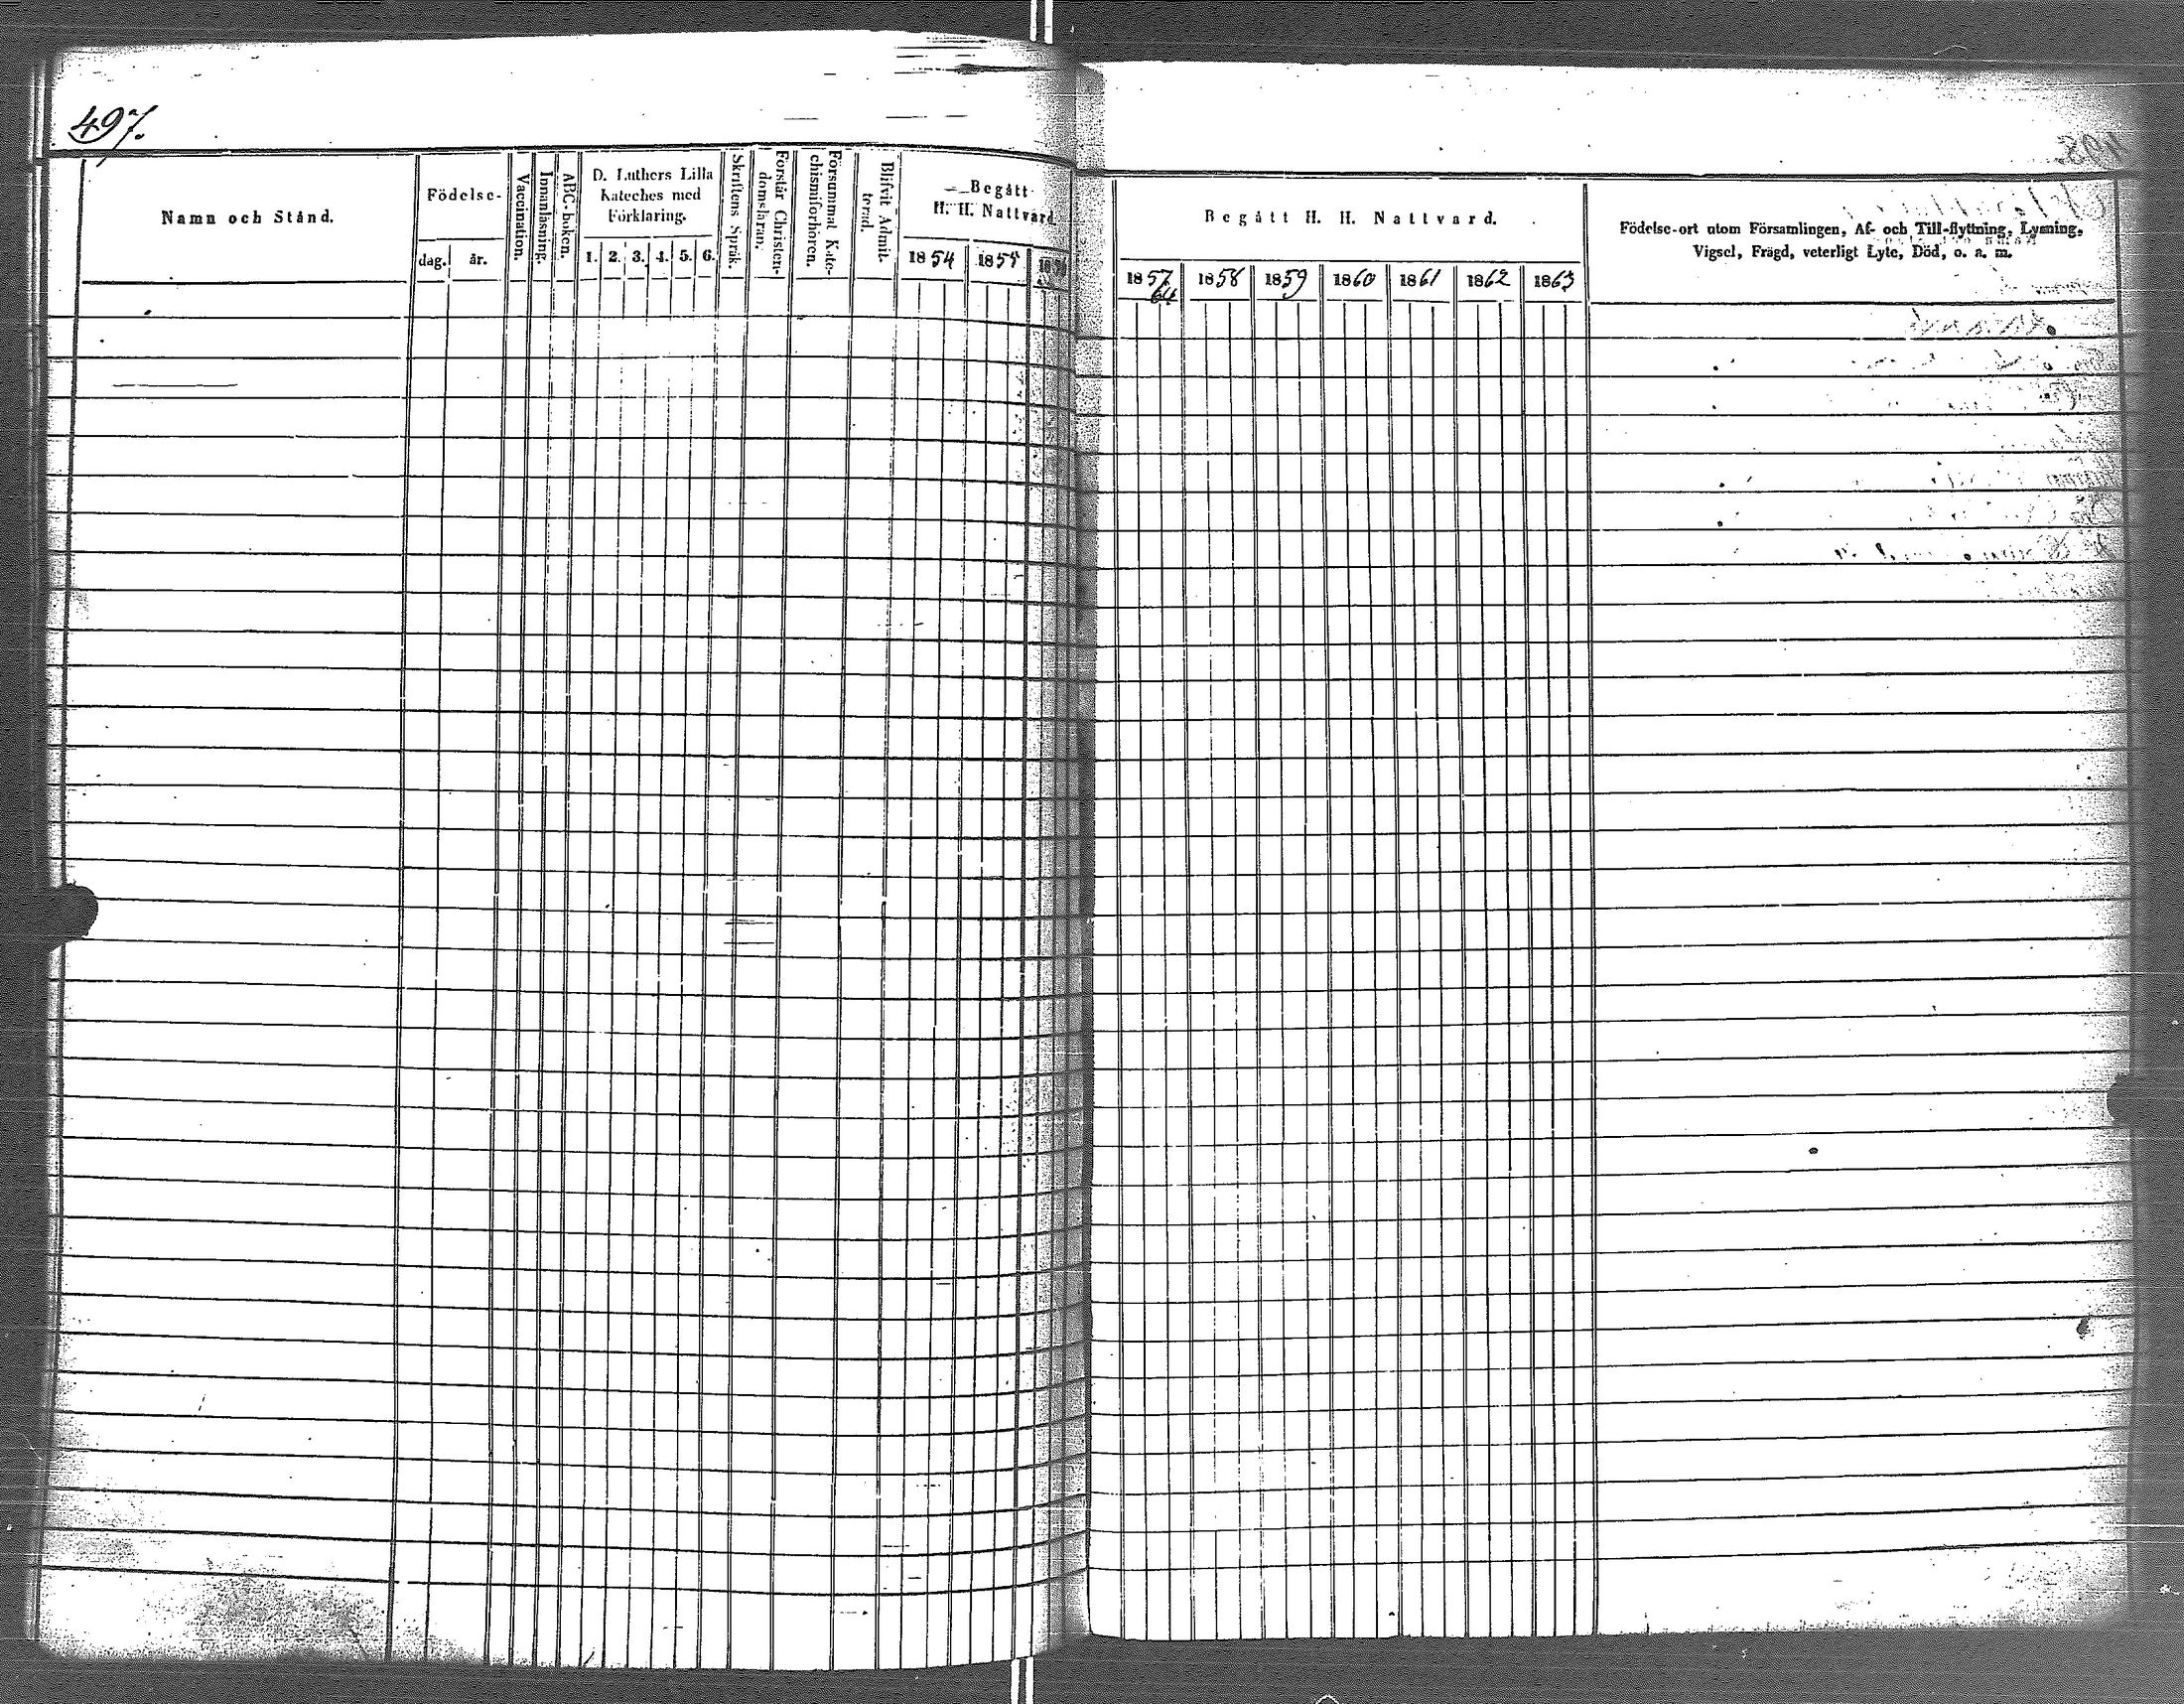 497.
Namn och Stånd.
Födelse-
dag. år.
Vaccination.
Innanläsning.
ABC-boken.
D. Luthers Lilla
Kateches med
Förklaring.
1. 2. 3. 4. 5. 6.
Skriftens Språk.
Förstår Christen-
domsläran.
Försummat Kate-
chismiförhören.
Blifvit Admit-
terad.
Begått
H. H. Nattvard
1854 1855 1856
Begått H. H. Nattvard.
1857 1858 1859 1860 1861 1862 1863
64
Födelse-ort utom Församlingen, Af- och Till-flyttning, Lysning,
Vigsel, Frägd, veterligt Lyte, Död, o. a. m.